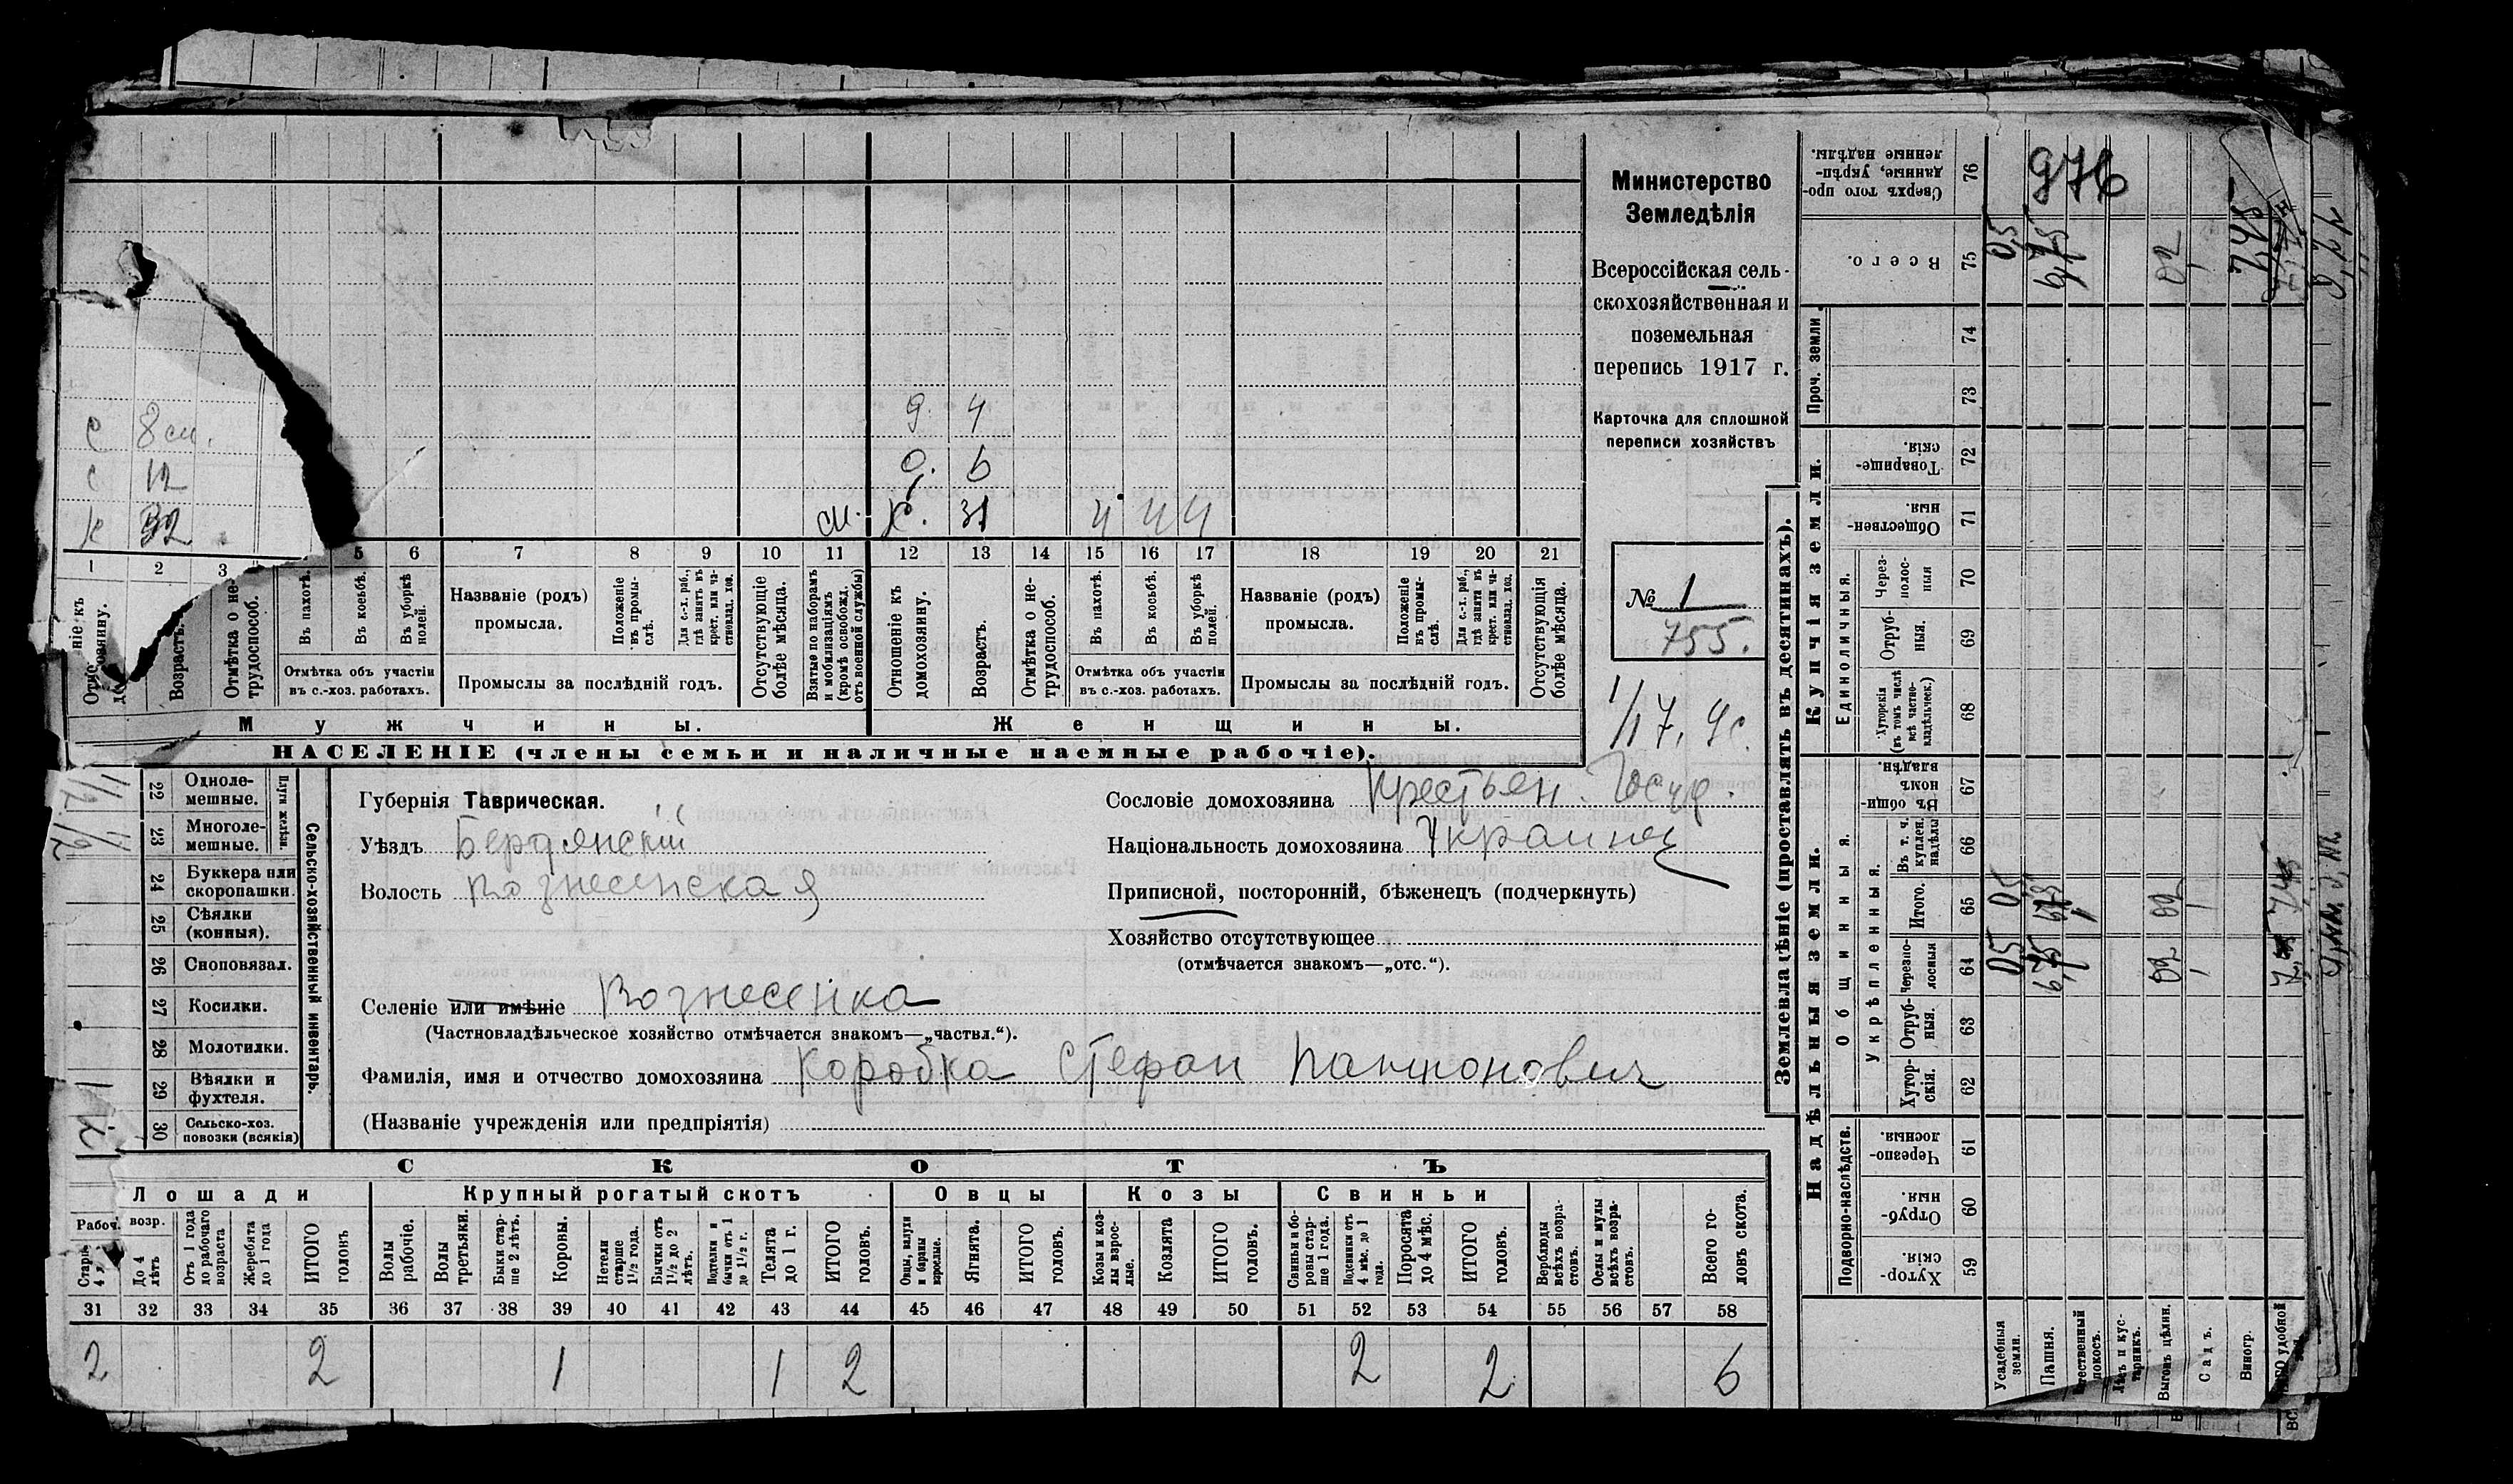 Министерство
Земледѣлія
Всероссійская сель-
скохозяйственная и
поземельная
перепись 1917 г.
Карточка для сплошной
переписи хозяйствъ
№ 1
755.
д. 4
с 8 см.
с 12 д. 6
к 32 ж. 31 ч ч ч
1 2 3 5 6 7 8 9 10 11 12 13 14 15 16 17 18 19 20 21
Возрастъ.
Отмѣтка о не-
трудоспособ.
Въ пахотѣ.
Въ косьбѣ.
Въ уборкѣ
полей.
Отмѣтка объ участіи
въ с.-хоз. работахъ.
Названіе (родъ)
промысла.
Положеніе
въ промы-
слѣ.
Для с.-х. раб.,
гдѣ занятъ въ
крест. или ча-
стновлад. хоз.
Промыслы за послѣдній годъ.
Отсутствующіе
болѣе мѣсяца.
Взятые по наборамъ
и мобилизаціямъ
(кромѣ освобожд.
отъ военной службы)
Отношеніе къ
домохозяину.
Возрастъ.
Отмѣтка о не-
трудоспособ.
Въ пахотѣ.
Въ косьбѣ.
Въ уборкѣ
полей.
Отмѣтка объ участіи
въ с.-хоз. работахъ.
Названіе (родъ)
промысла.
Положеніе
въ промы-
слѣ.
Для с.-х. раб.,
гдѣ занята въ
крест. или ча-
стновлад. хоз.
Промыслы за послѣдній годъ.
Отсутствующія
болѣе мѣсяца.
Мужчины. Женщины.
НАСЕЛЕНІЕ (члены семьи и наличные наемные рабочіе).
Сельско-хозяйственный инвентарь.
Плуги желѣзн.
22 Одноле-
мешные.
23 Многоле-
мешные.
24 Буккера или
скоропашки.
25 Сѣялки
(конныя).
26 Сноповязал.
27 Косилки.
28 Молотилки.
29 Вѣялки и
фухтеля.
30 Сельско-хоз.
повозки (всякія)
Губернія Таврическая.
Уѣздъ Бердянскій
Волость Вознесенская
Сословіе домохозяина Крестьян. Госуд.
Національность домохозяина Украинец
Приписной, посторонній, бѣженецъ (подчеркнуть)
Хозяйство отсутствующее
(отмѣчается знакомъ—„отс.“).
Селеніе или имѣніе Вознесенка
(Частновладѣльческое хозяйство отмѣчается знакомъ—„частвл.“).
Фамилія, имя и отчество домохозяина Коробка Стефан Пантионович
(Названіе учрежденія или предпріятія)
СКОТЪ
Лошади Крупный рогатый скотъ Овцы Козы Свиньи
Рабоч. возр.
До 4
лѣтъ
Отъ 1 года
до рабочаго
возраста
Жеребята
до 1 года
ИТОГО
головъ
Волы
рабочіе.
Волы
третьяки.
Быки стар-
ше 2 лѣтъ.
Коровы.
Нетели
старше
1½ года.
Бычки отъ
1½ до 2
лѣтъ.
Подтелки и
бычки отъ 1
до 1½ г.
Телята
до 1 г.
ИТОГО
головъ.
Овцы, валухи
и бараны
взрослые.
Ягнята.
ИТОГО
головъ.
Козы и коз-
лы взрос-
лые.
Козлята
ИТОГО
головъ.
Свиньи и бо-
ровы стар-
ше 1 года.
Подсвинки отъ
4 мѣс. до 1
года.
Поросята
до 4 мѣс.
ИТОГО
головъ.
Верблюды
всѣхъ возра-
стовъ.
Ослы и мулы
всѣхъ возра-
стовъ.
Всего го-
ловъ скота.
31 32 33 34 35 36 37 38 39 40 41 42 43 44 45 46 47 48 49 50 51 52 53 54 55 56 57 58
2 2 1 1 2 2 2 6
Землевладѣніе (проставлять въ десятинахъ).
Надѣльныя земли. Купчія земли. Проч. земли
Подворно-наслѣдств.
Общинныя.
Укрѣпленныя.
Единоличныя.
59 Хутор-
скія.
60 Отруб-
ныя.
61 Черезпо-
лосныя.
62 Хутор-
скія.
63 Отруб-
ныя.
64 Черезпо-
лосныя
65 Итого.
66 Въ т. ч.
куплен.
надѣлы
67 Въ общи-
номъ
владѣн.
68 Хуторскія
(въ томъ числѣ
всѣ частно-
владѣльческ.)
69 Отруб-
ныя.
70 Через-
полос-
ныя
71 Обществен-
ныя.
72 Товарище-
скія.
73
74
75 Всего.
76 Сверхъ того про-
данные, укрѣп-
ленные надѣлы.
Усадебныя
земли.
Пашня.
Естественный
покосъ.
Лѣсъ и кус-
тарникъ.
Выгонъ цѣлин.
Садъ.
Виногр.
0,5 6,75 02 7,45